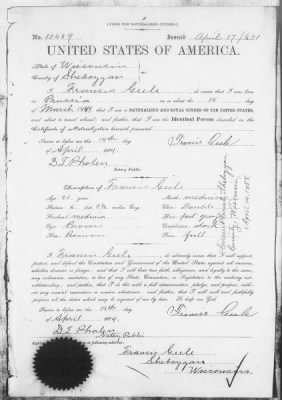 [FORM FOR NATURALIZED CITIZEN.]
No. 10489 Issued April 17/1884
UNITED STATES OF AMERICA.
State of Wisconsin
County of Sheboygan
I Francis Geele do swear that I was born in
Prussia on or about the 15 day
of March 1844 that I am a NATURALIZED AND LOYAL CITIZEN OF THE UNITED STATES,
and about to travel abroad; and further, that I am the Identical Person described in the
Certificate of Naturalization herewith presented.
Sworn to before me this 14th day Francis Geele
of April 1884.
D. T. Phalen
Notary Public.
Description of Francis Geele
Age: 40 years Mouth: medium
Stature: 5 feet inches Eng. Chin: Double
Forehead: medium Hair:
Eyes: Brown Complexion: dark
Nose: Roman Face: full
I Francis Geele do solemnly swear that I will support,
protect, and defend the Constitution and Government of the United States against all enemies,
whether domestic or foreign; and that I will bear true faith, allegiance, and loyalty to the same,
any ordinance, resolution, or law of any State, Convention, or Legislature to the contrary not-
withstanding; and further, that I do this with a full determination, pledge, and purpose, with-
out any mental reservation or evasion whatsoever; and further, that I will well and faithfully
perform all the duties which may be required of me by law. So help me God.
Sworn to before me this 14th day Francis Geele
of April 1884.
D. T. Phalen
Notary Public
Applicant desires passport sent to following address:
Francis Geele
Sheboygan
Wisconsin